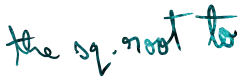 the sq. root to